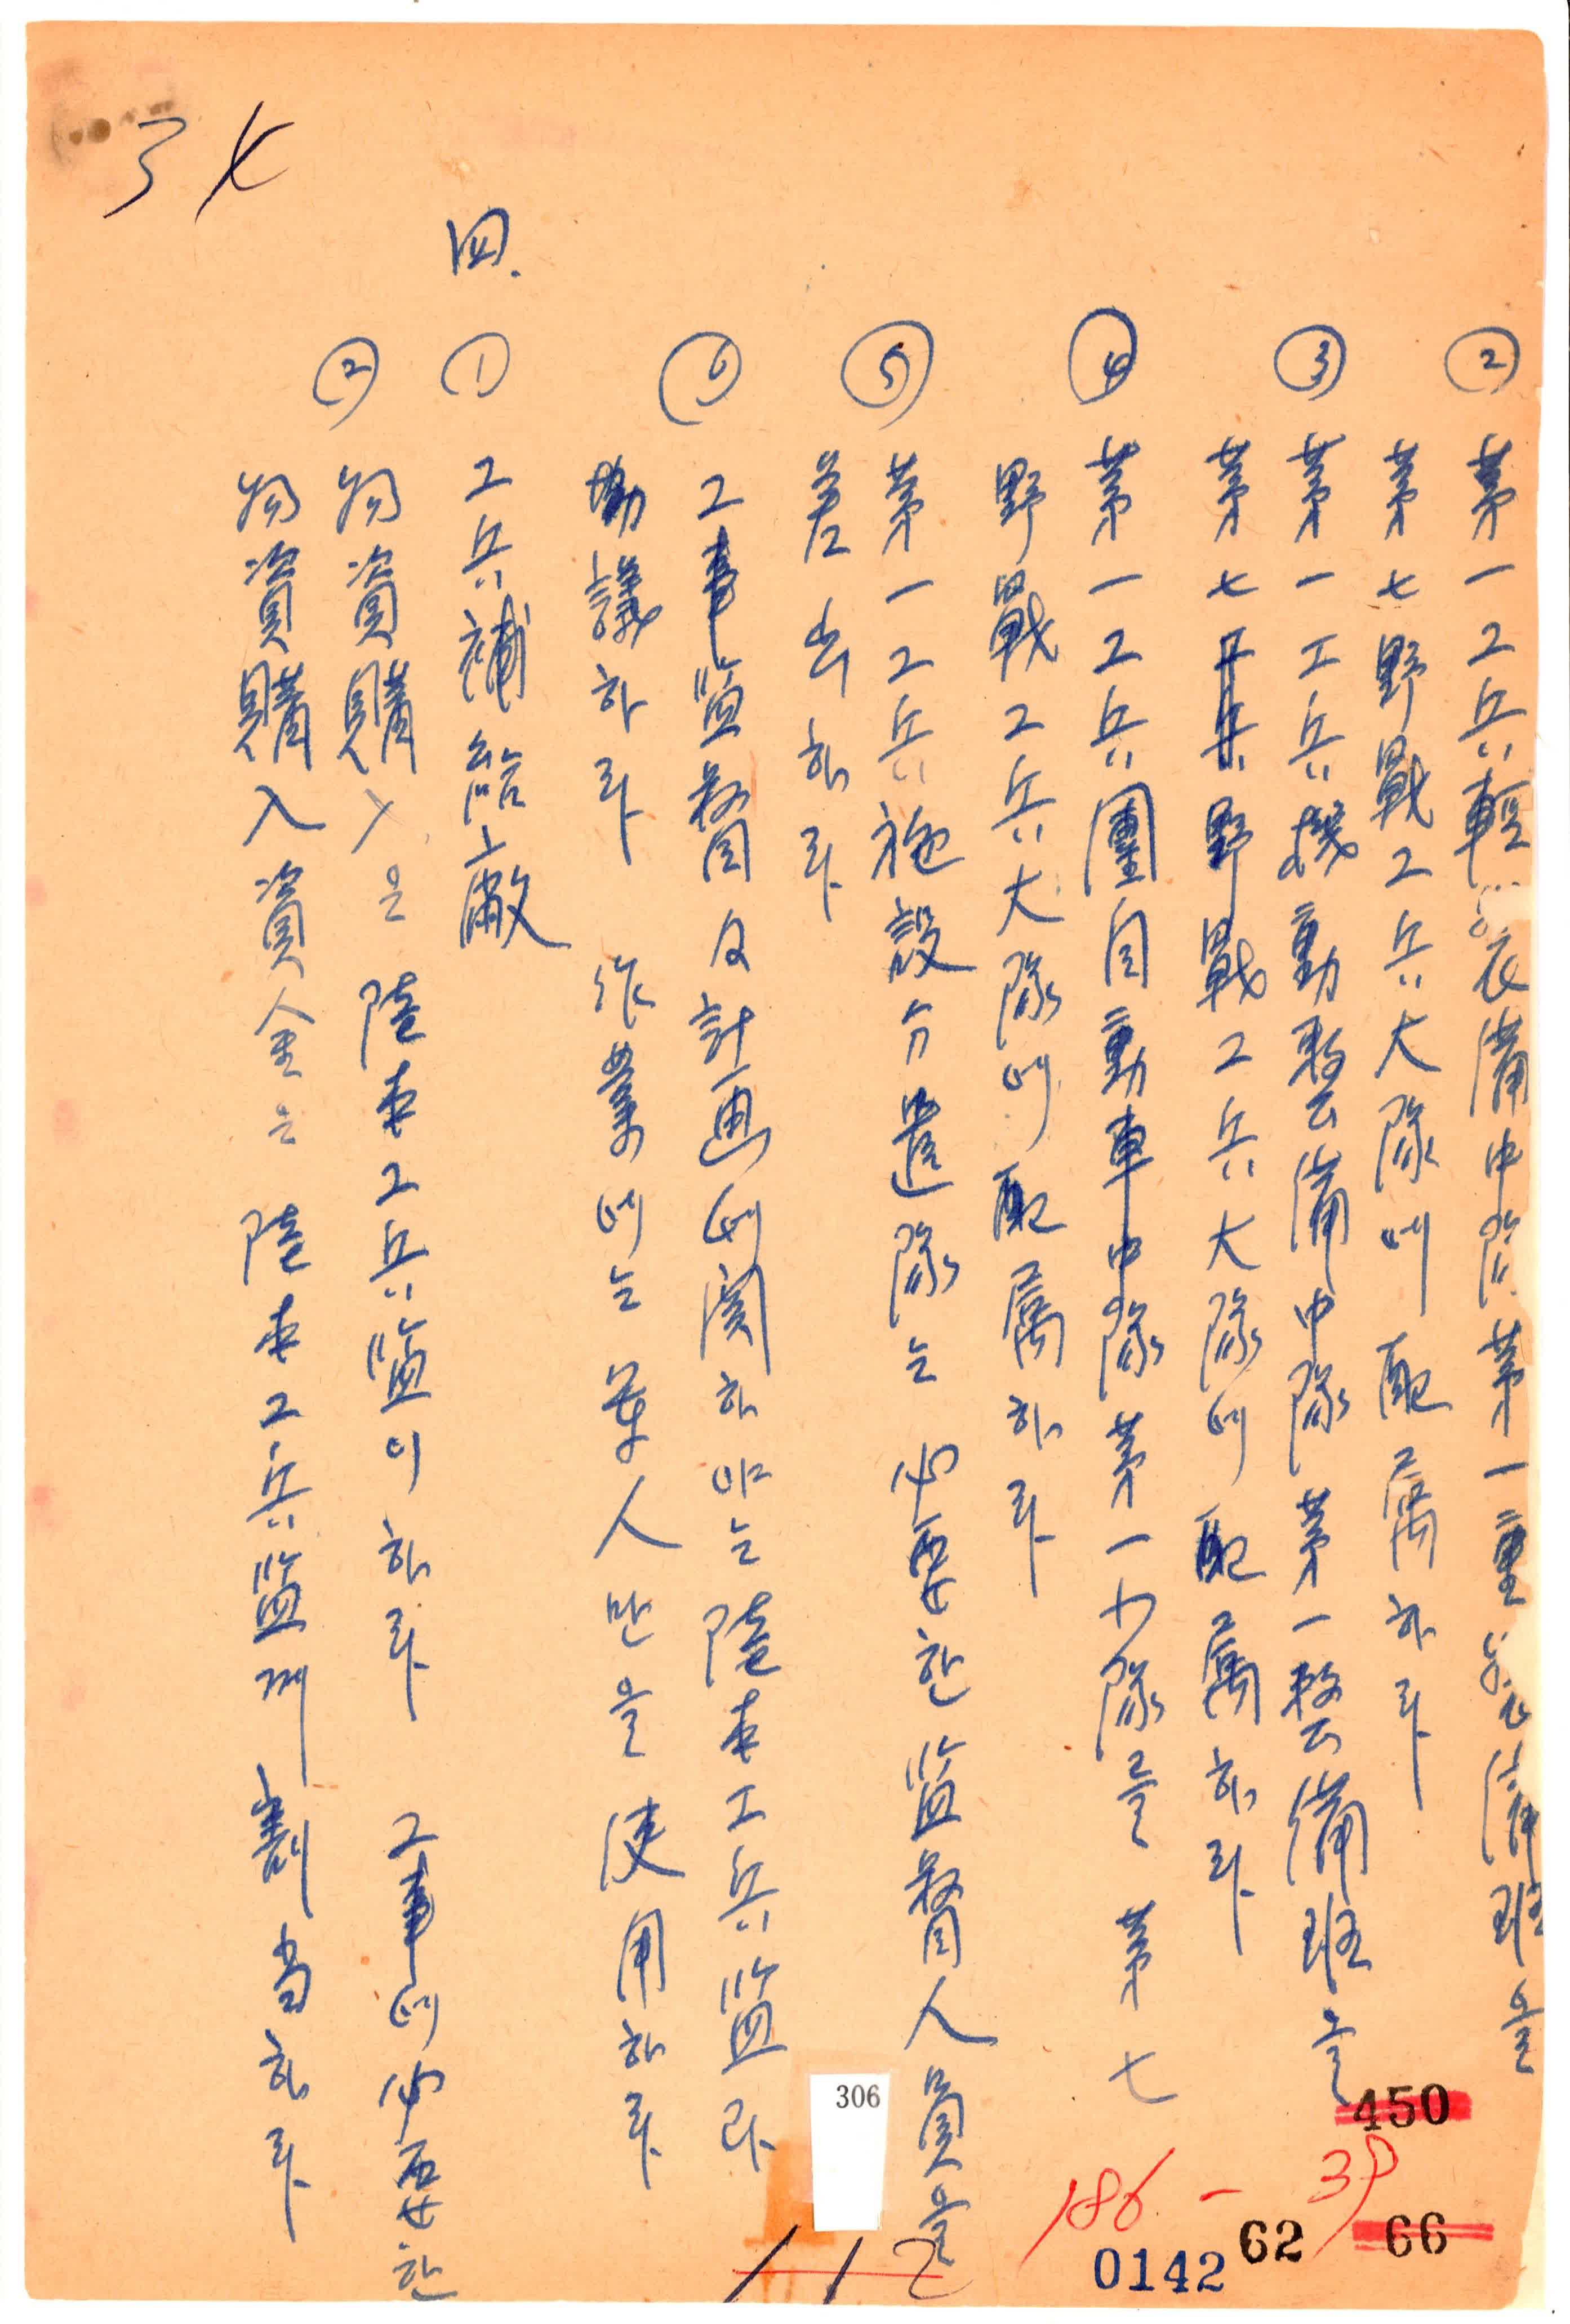 ② 第一工兵輕裝備中隊 第一重裝備班을
第七野戰工兵大隊에 配屬하라
③ 第一工兵機動整備中隊 第一整備班을
第七野戰工兵大隊에 配屬하라
④ 第一工兵團自動車中隊 第一小隊를 第七
野戰工兵大隊에 配屬하라
⑤ 第一工兵施設分遣隊는 必要한 監督人員을
差出하라
⑥ 工事監督 及 計画에 関하야는 陸本工兵監과
協議하라 作業에는 軍人만을 使用하라
四. ① 工兵補給廠
② 物資購入은 陸本工兵監이 하라 工事에 必要한
物資購入資金은 陸本工兵監께 割当하라
306
450
186 - 39
62
66
0142
112